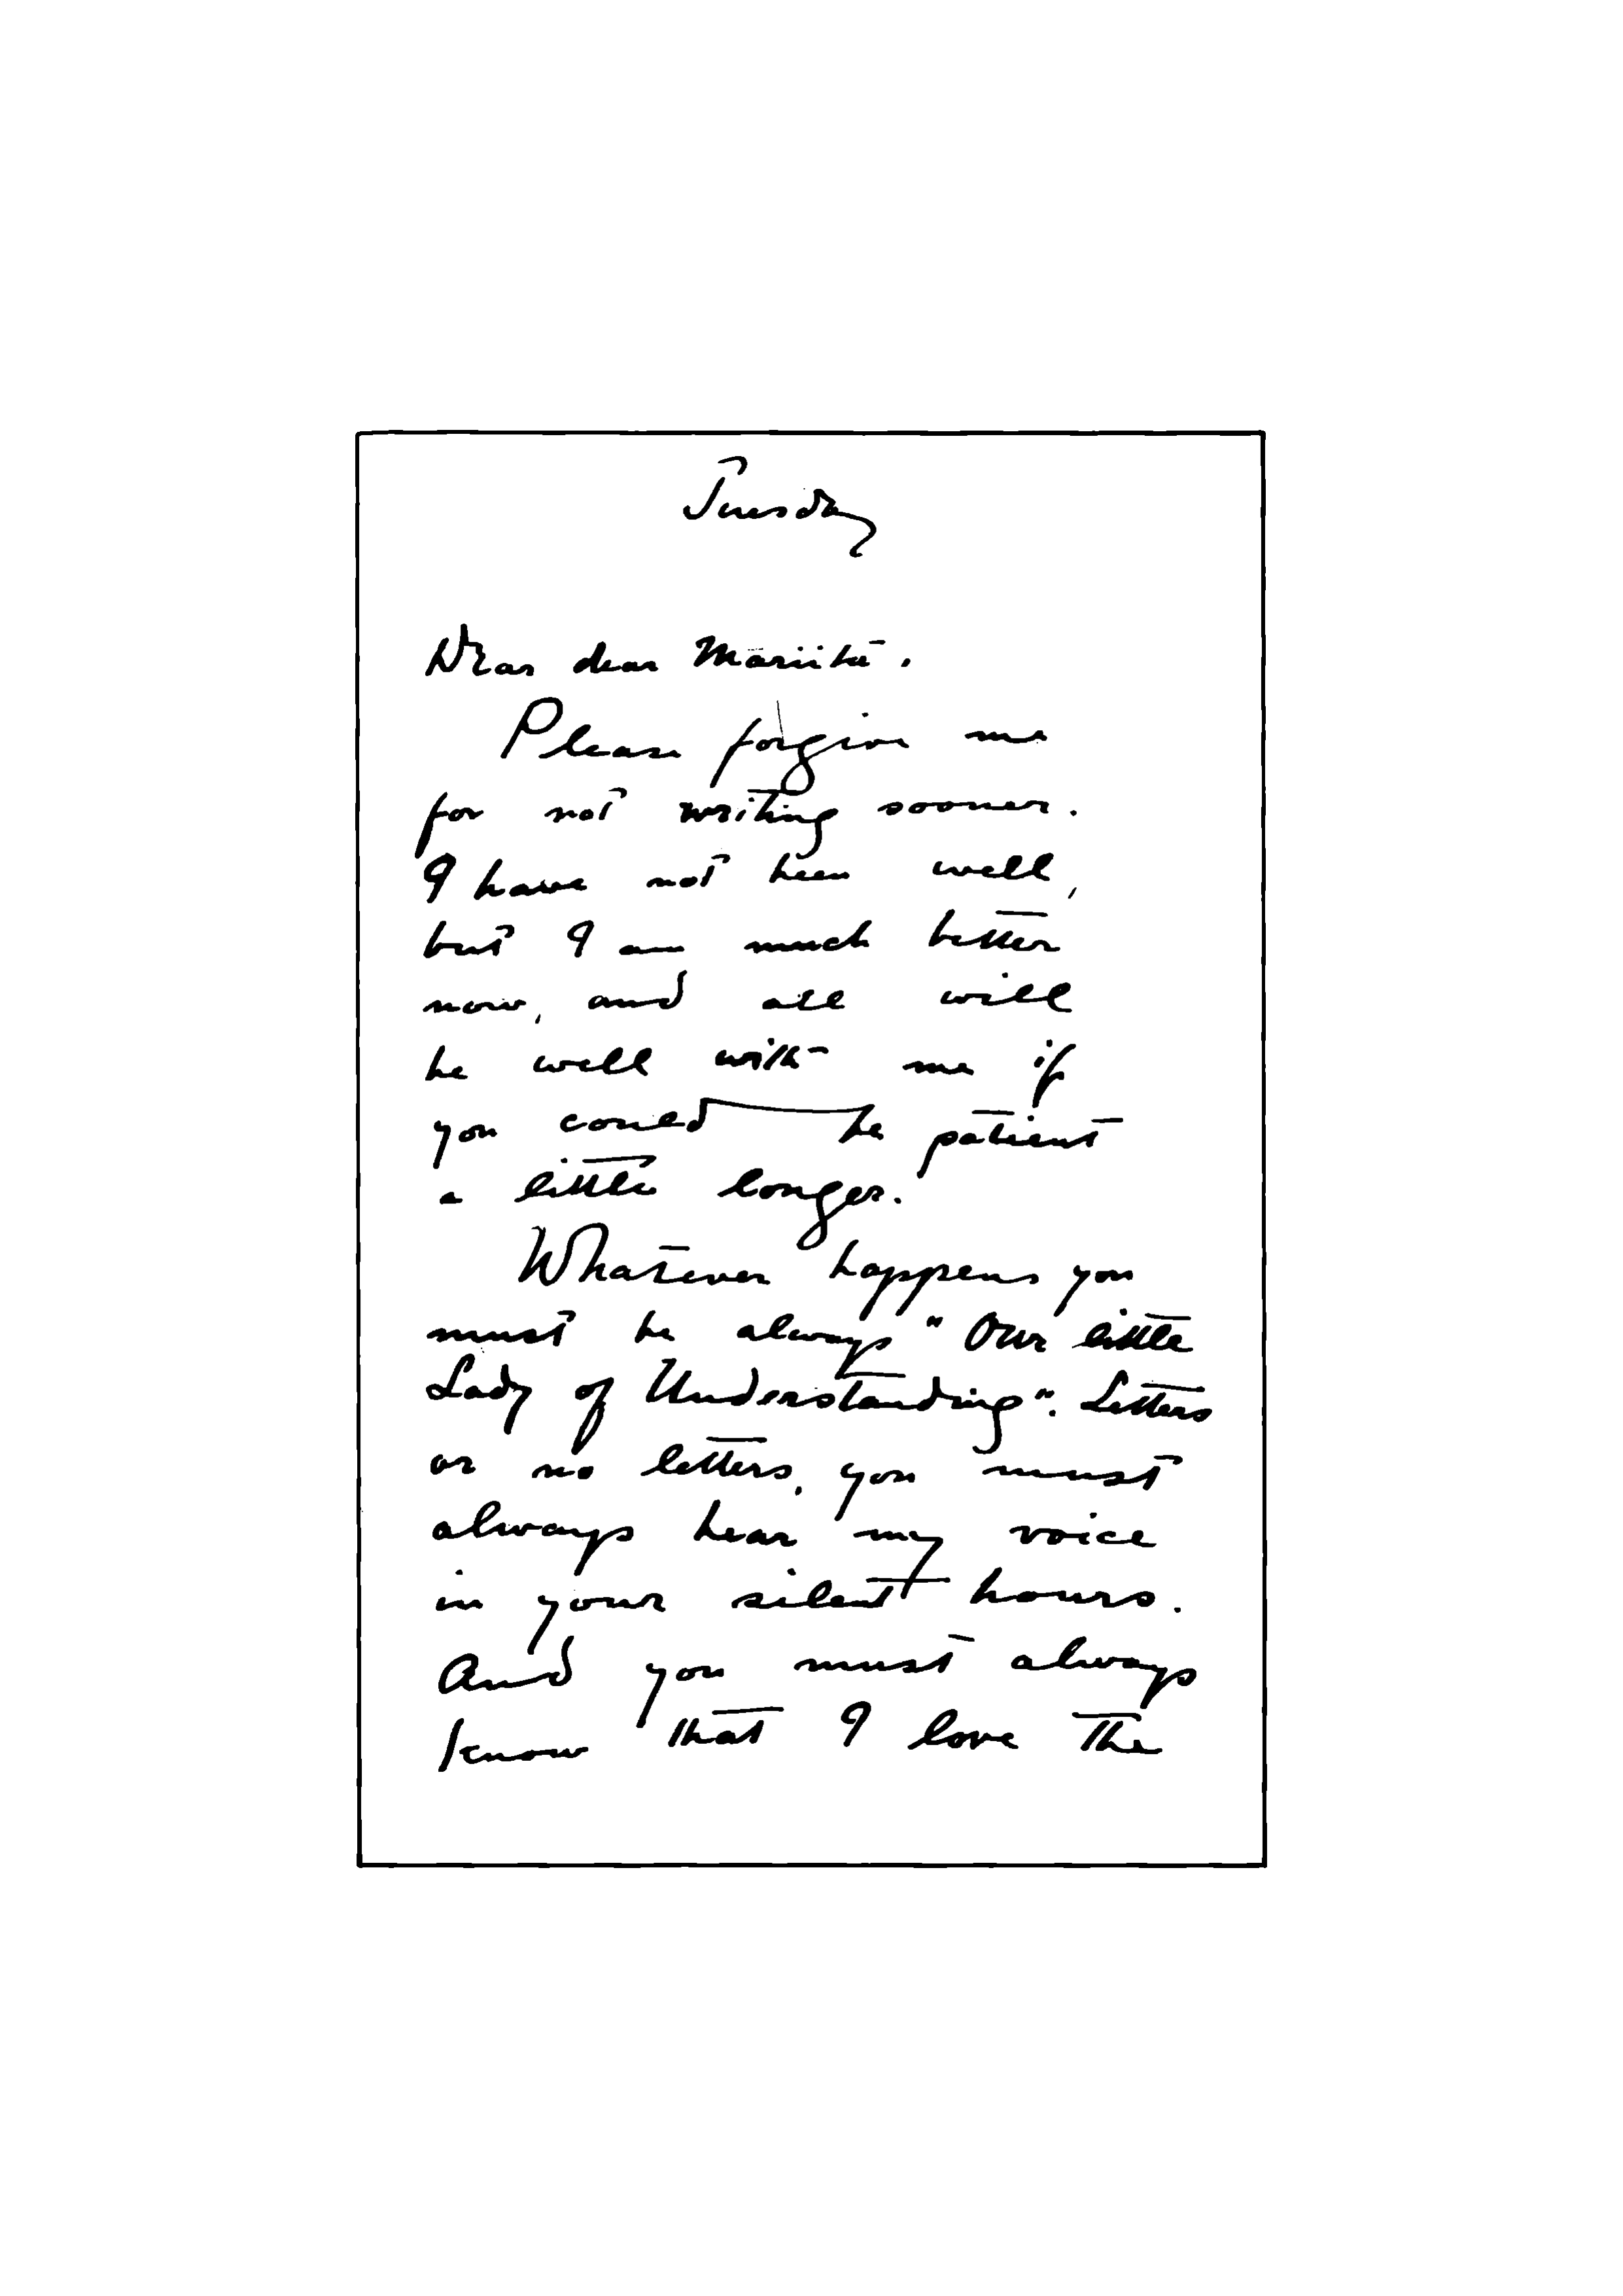 Tuesday
Dear dear Mariita.
Please forgive me
for not writing sooner.
I have not been well,
but I am much better
now, and all will
be well with me if
you could be patient
a little longer.
Whatever happens you
must be always "Our little
Lady of Understanding". Letters
or no letters, you must
always hear my voice
in your silent hours.
And you must always
know that I love the